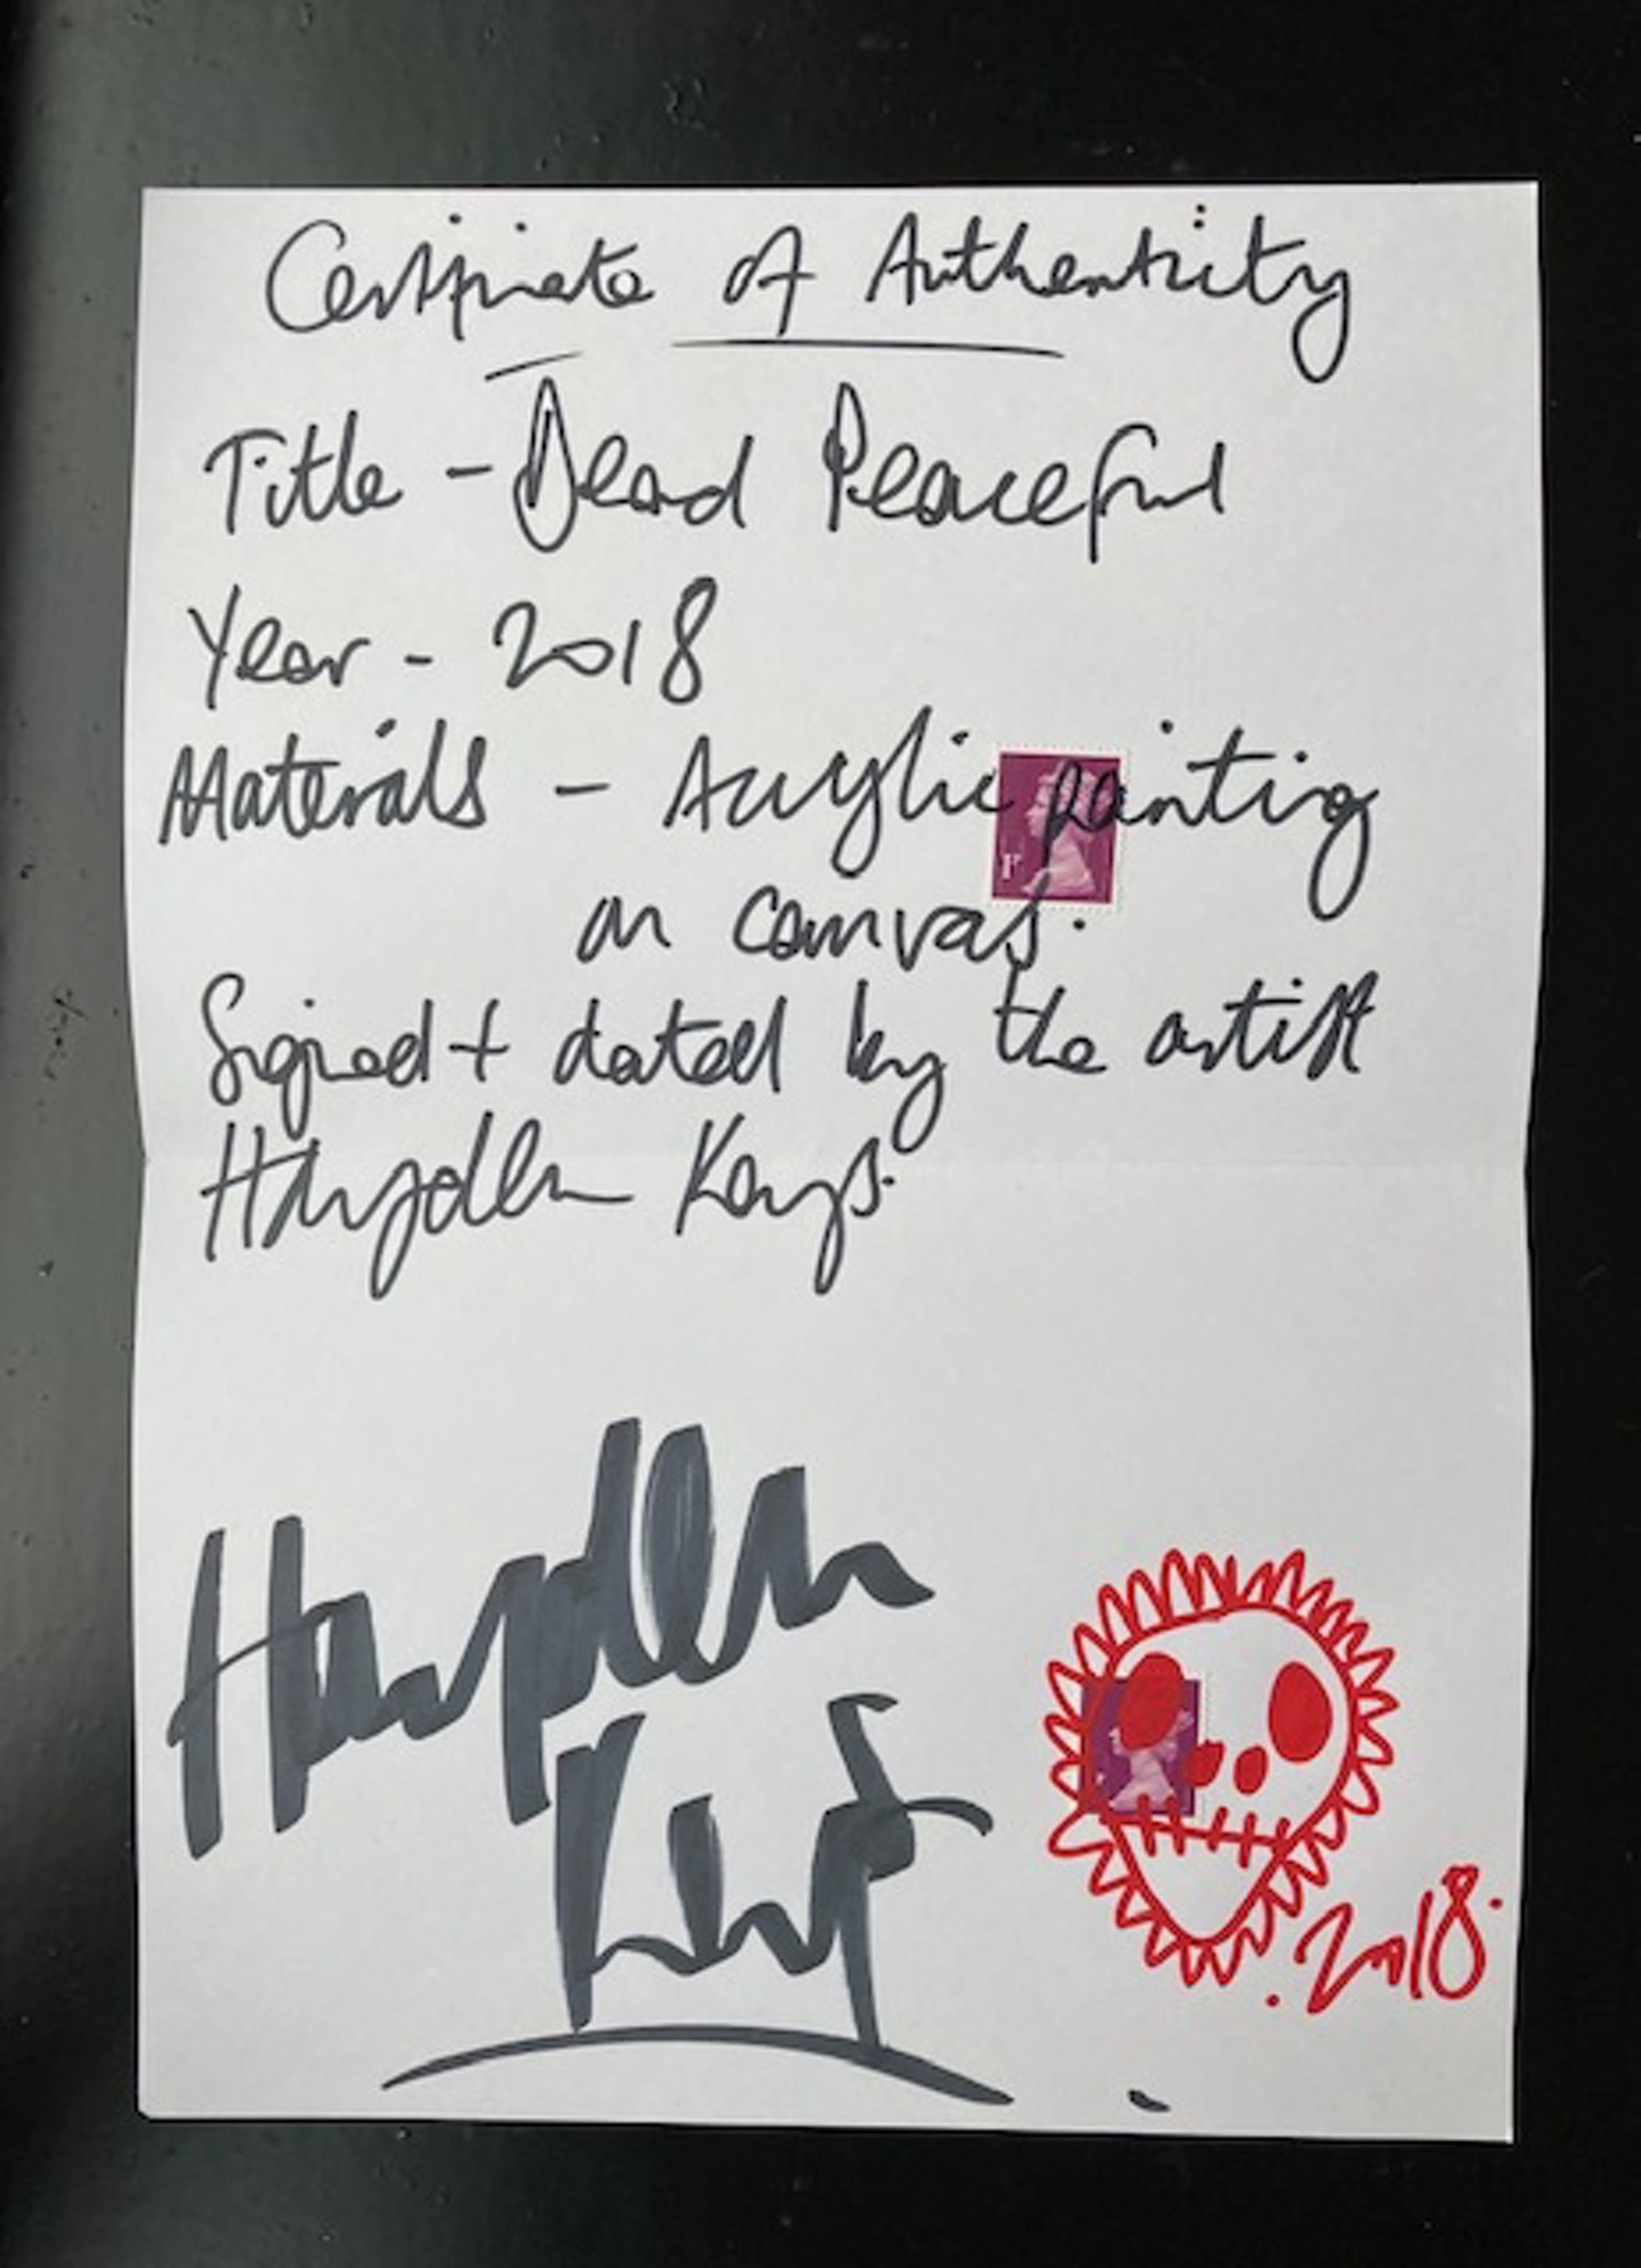 Certificate of Authenticity
Title - Dead Peaceful
Year - 2018
Materials - Acrylic painting
1P
on canvas.
Signed + dated by the artist
Hayden Kays.
Hayden
Kays
2018.